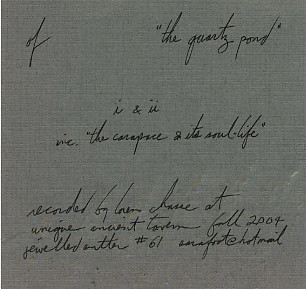 of "the quartz pond"
i & ii
inc. "the carapace & its soul-life"
recorded by loren chasse at
unique ancient tavern fall 2004
jewelled antler #61 sarafoot@hotmail